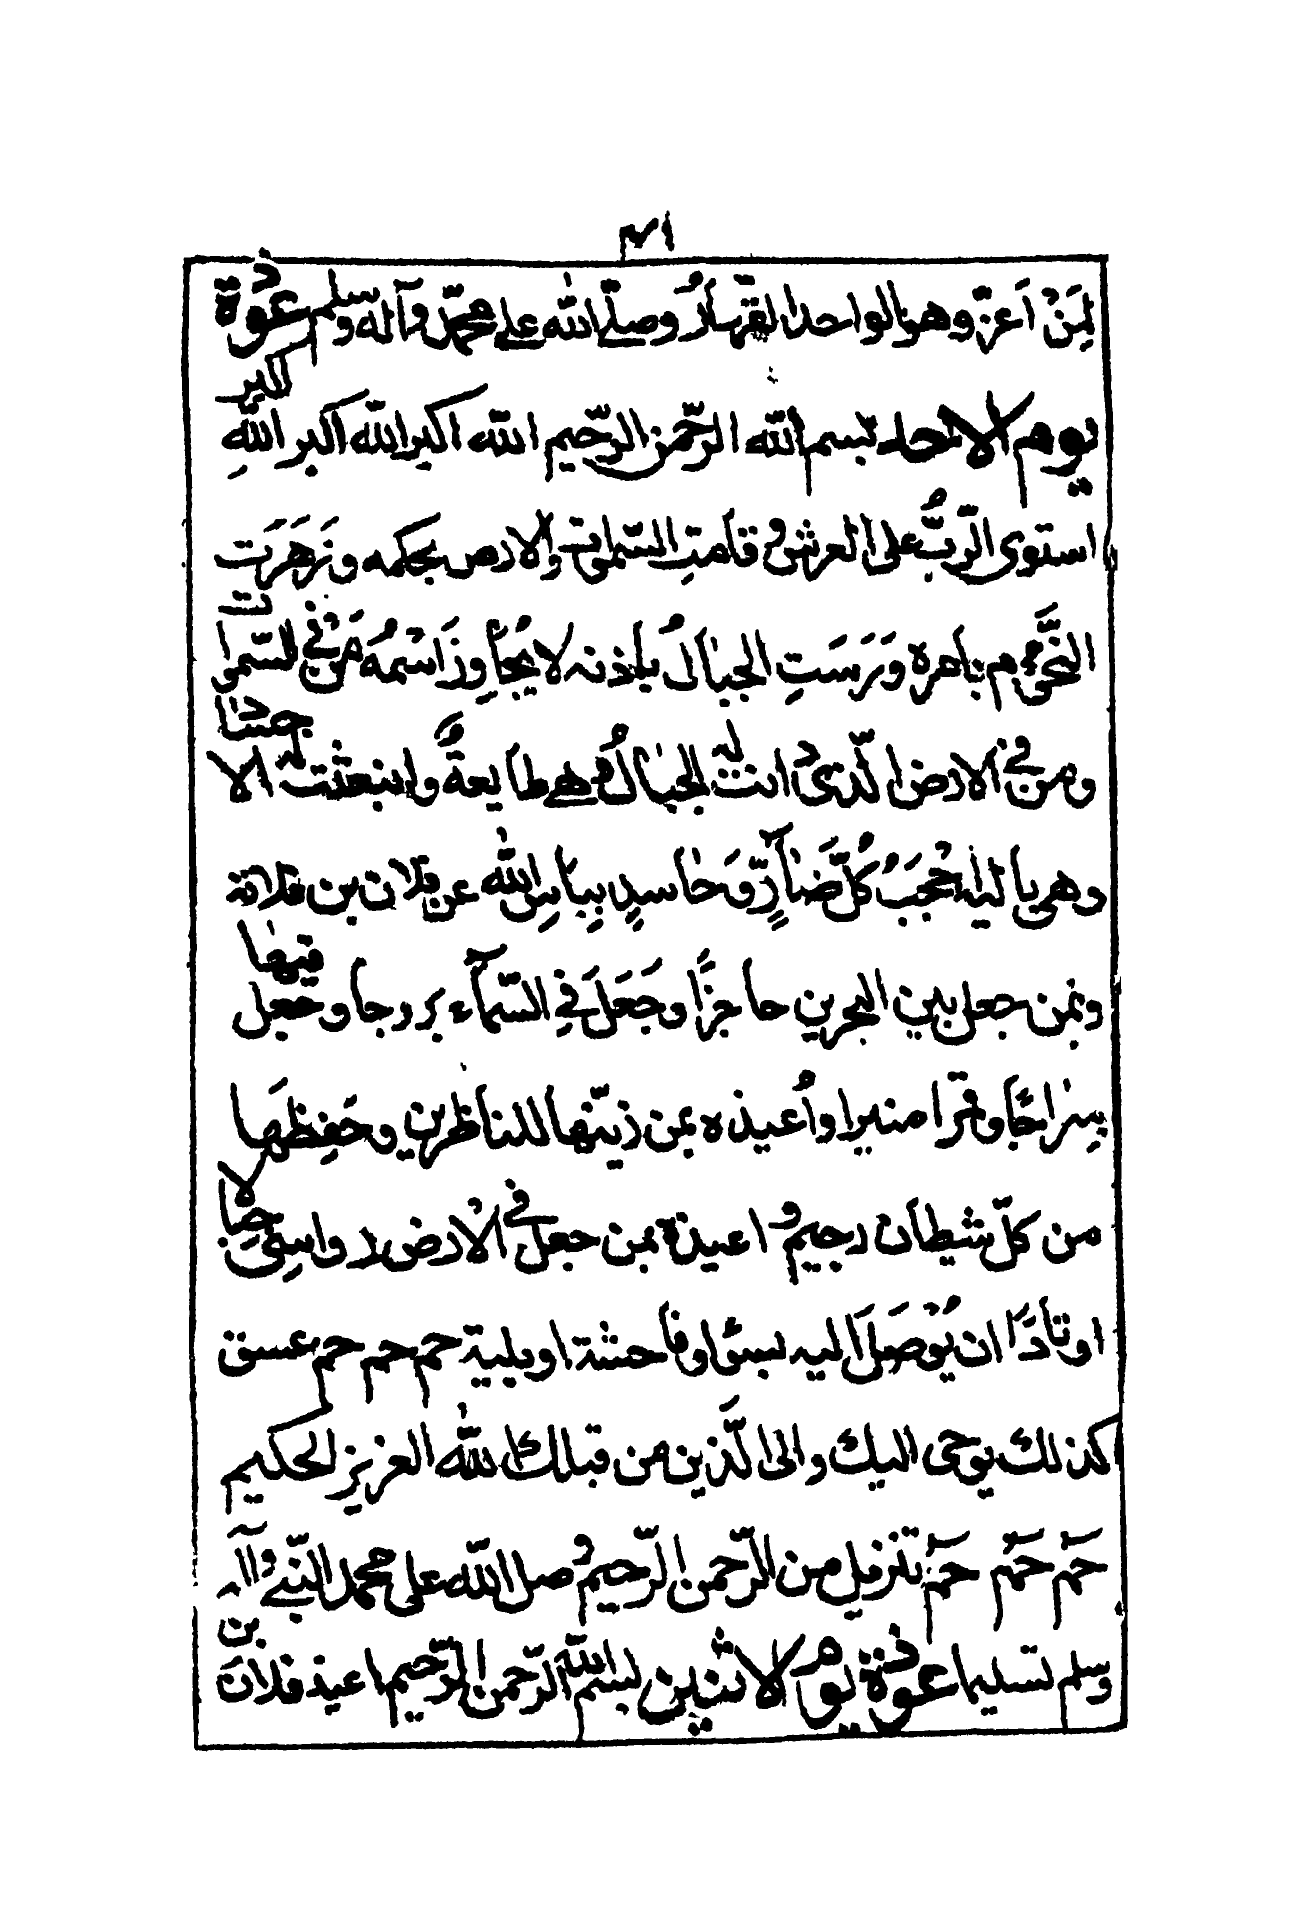 لِمَنْ اَعزّ وهو الواحد القهّارُ وصلّى اللّٰه على محمّد وآله وسلم عوذة
يوم الاحد بسم اللّه الرحّمن الرحّيم اللّه اكبر اللّه اكبر اللّه اكبر اللّهِ
استوى الربُّ على العرش وقامتِ السّموات والارض بحكمه وزَهَرَت
النجّومُ بامره ورَسَتِ الجبالُ باذنه لا يُجٰاوِزُ اسْمُهُ مَنْ في السّموات
ومن في الارض الّذى دانت له الجبٰالُ وهي طايعةٌ وانبعثت له الاجسٰاد
وهي باليه حُجُبُ كُلَّ ضٰآرّ وَحٰاسدٍ بباس اللّٰه عن فلان بن فلانة
وبمن جعل بين البحرين حاجزًا وجَعَلَ في السّمآء بروجا وجَعَل فيها
سِرٰاجًا وقمرا منيرا واُعيذه بمن زيّنها للناظرين وحفِظها
من كلّ شيطان رجيم واعيذه بمن جعل في الارض رواسِي جِبالا
اوتادًا ان يُوْصَلَ اليه بسوًا وفاحشة اوبلية حم حم حم عسق
كذلك يوحى اليك والى الّذين من قبلك اللّٰه العزيز الحكيم
حٓم حٓم حٓم تنزيل من الرّحمن الرّحيم وصل اللّه على محمد النّبي وآله
وسلم تسليما عوذة يوم الاثنين بسم اللّه الرّحمن الرّحيم اعيذ فلان بن